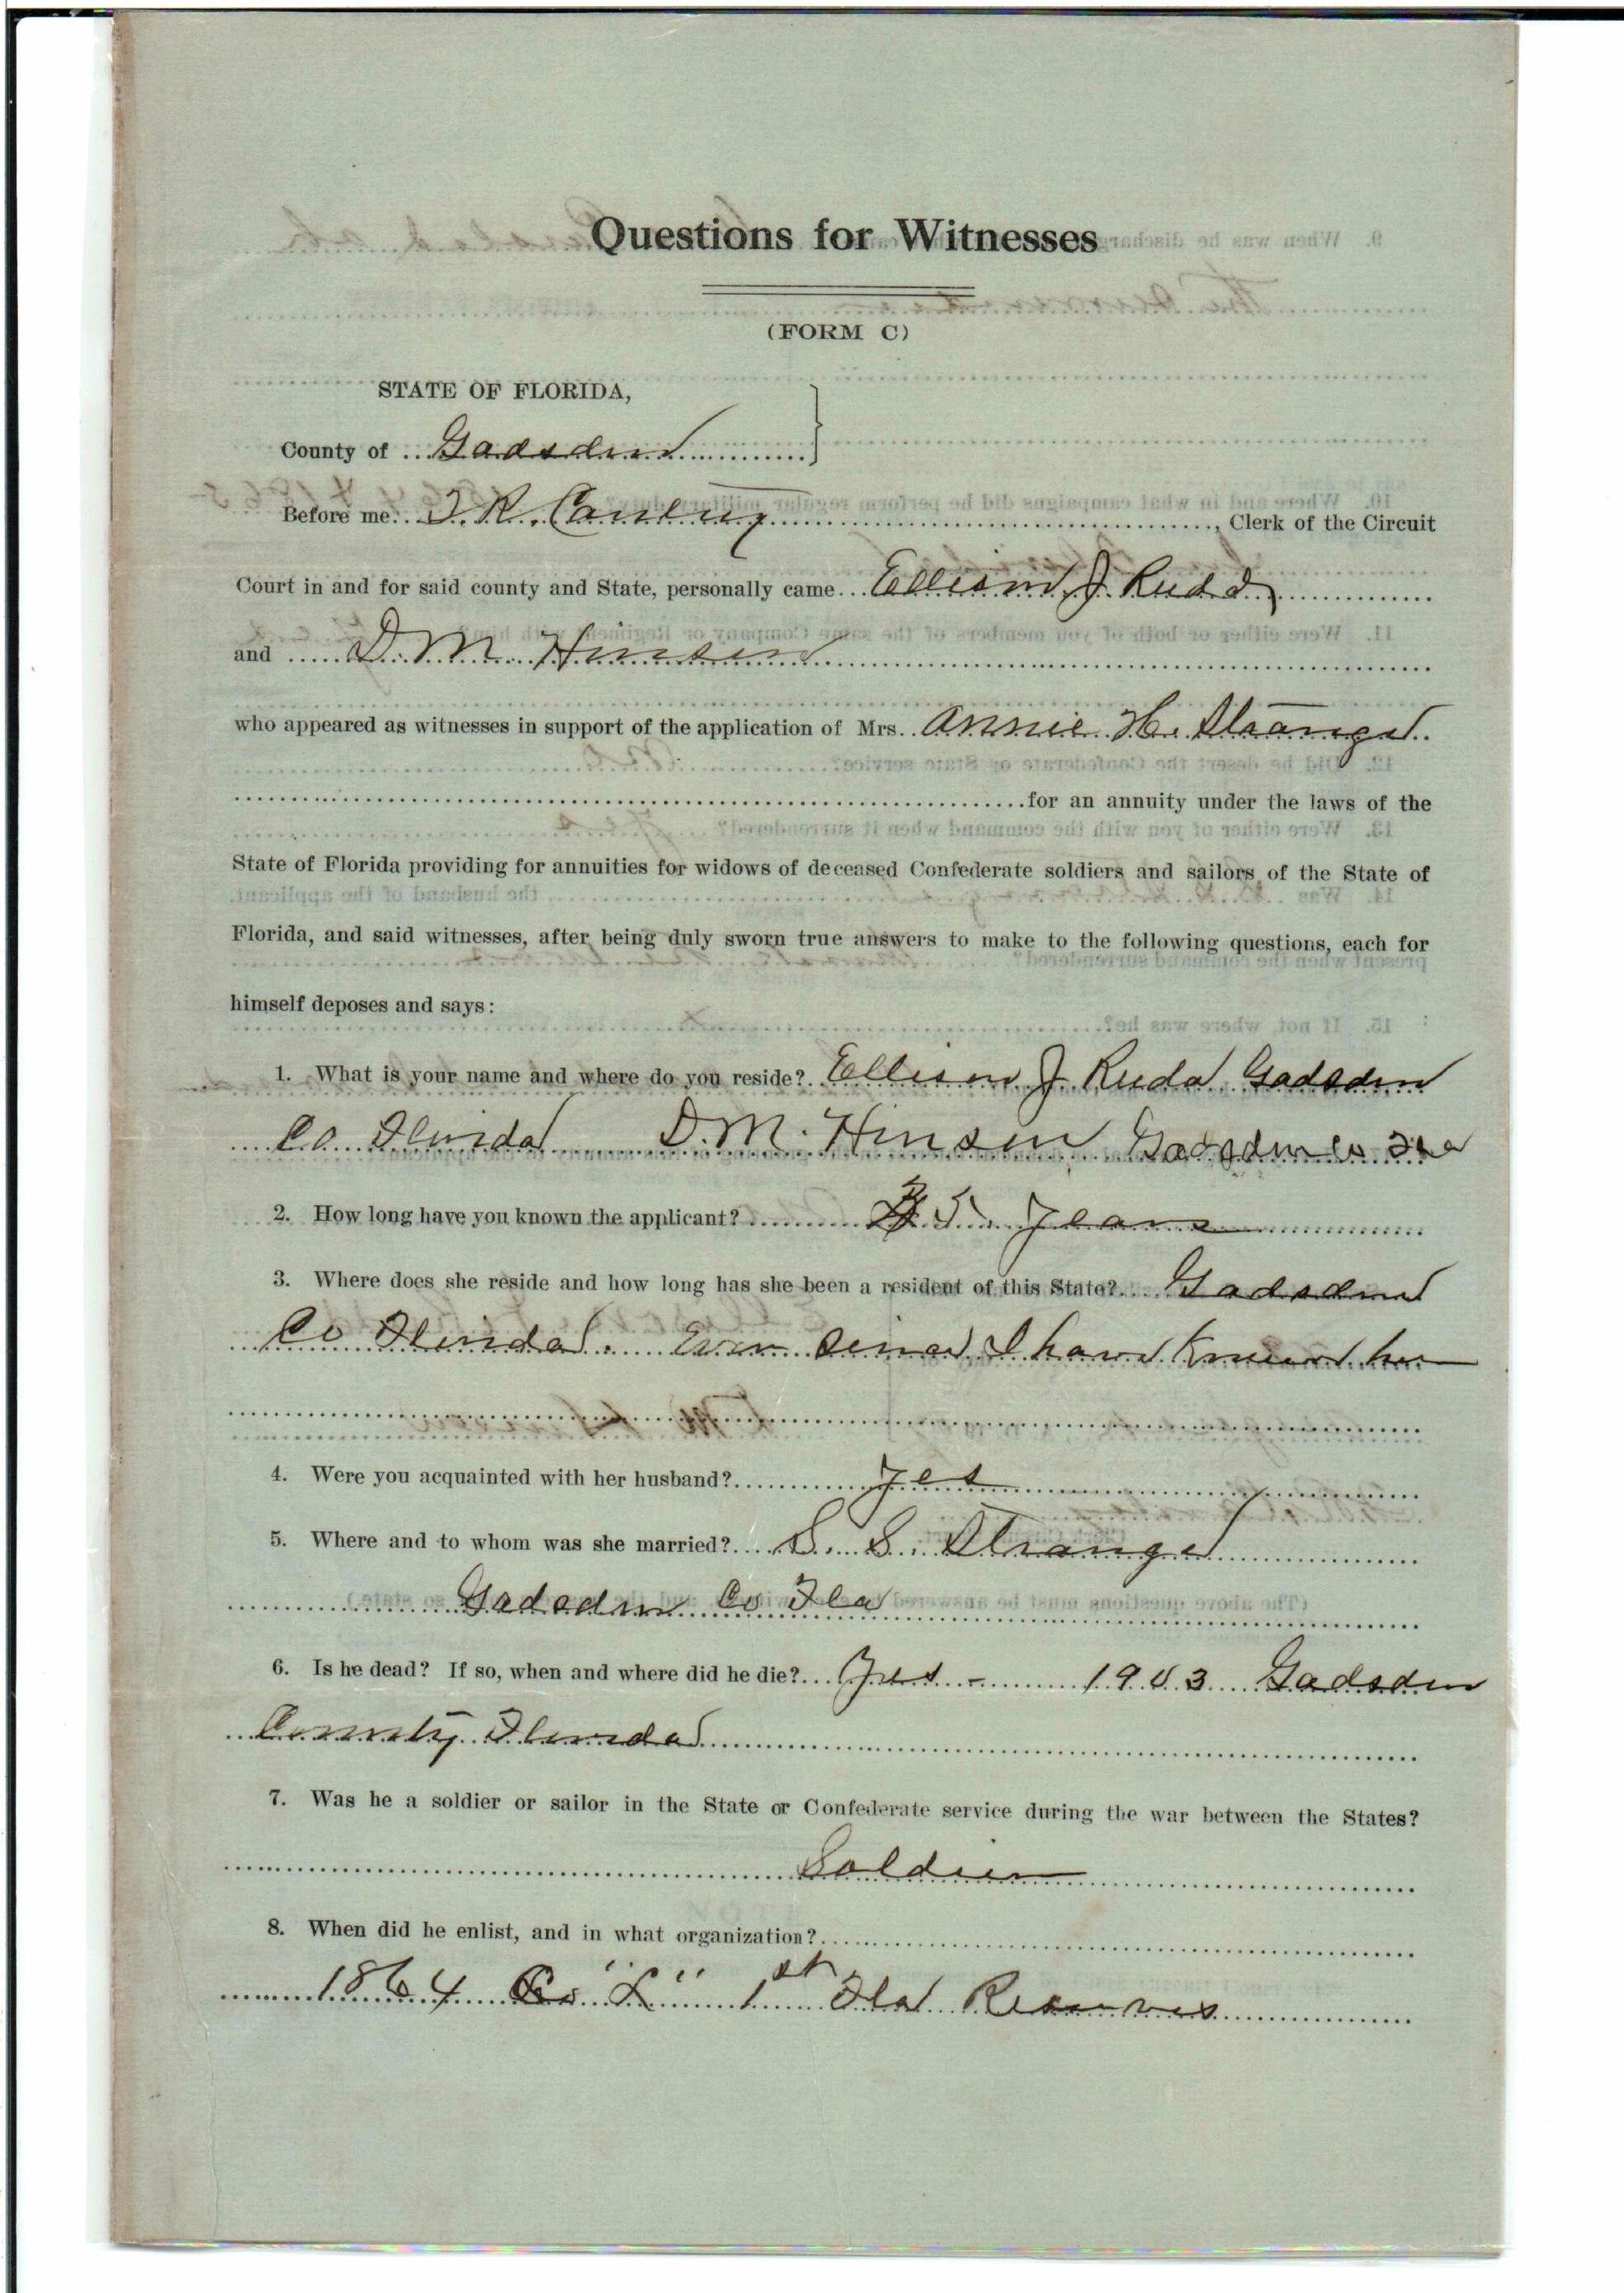 Questions for Witnesses
(FORM C)
STATE OF FLORIDA,
County of Gadsden
Before me T. R. , Clerk of the Circuit
Court in and for said county and State, personally came Ellison J Rudd
and D. M. Hinson
who appeared as witnesses in support of the application of Mrs. Annie H. Strange
for an annuity under the laws of the
State of Florida providing for annuities for widows of deceased Confederate soldiers and sailors of the State of
Florida, and said witnesses, after being duly sworn true answers to make to the following questions, each for
himself deposes and says:
1. What is your name and where do you reside? Ellison J Rudd Gadsden
Co. Florida D. M. Hinson Gadsden Co Fla
2. How long have you known the applicant? 35 years
3. Where does she reside and how long has she been a resident of this State? Gadsden
Co Florida. Ever since I have known her
4. Were you acquainted with her husband? yes
5. Where and to whom was she married? S. S. Strange
Gadsden Co Fla
6. Is he dead? If so, when and where did he die? Yes - 1903 Gadsden
County Florida
7. Was he a soldier or sailor in the State or Confederate service during the war between the States?
Soldier
8. When did he enlist, and in what organization?
1864 Co "K" 1st Fla Reserves